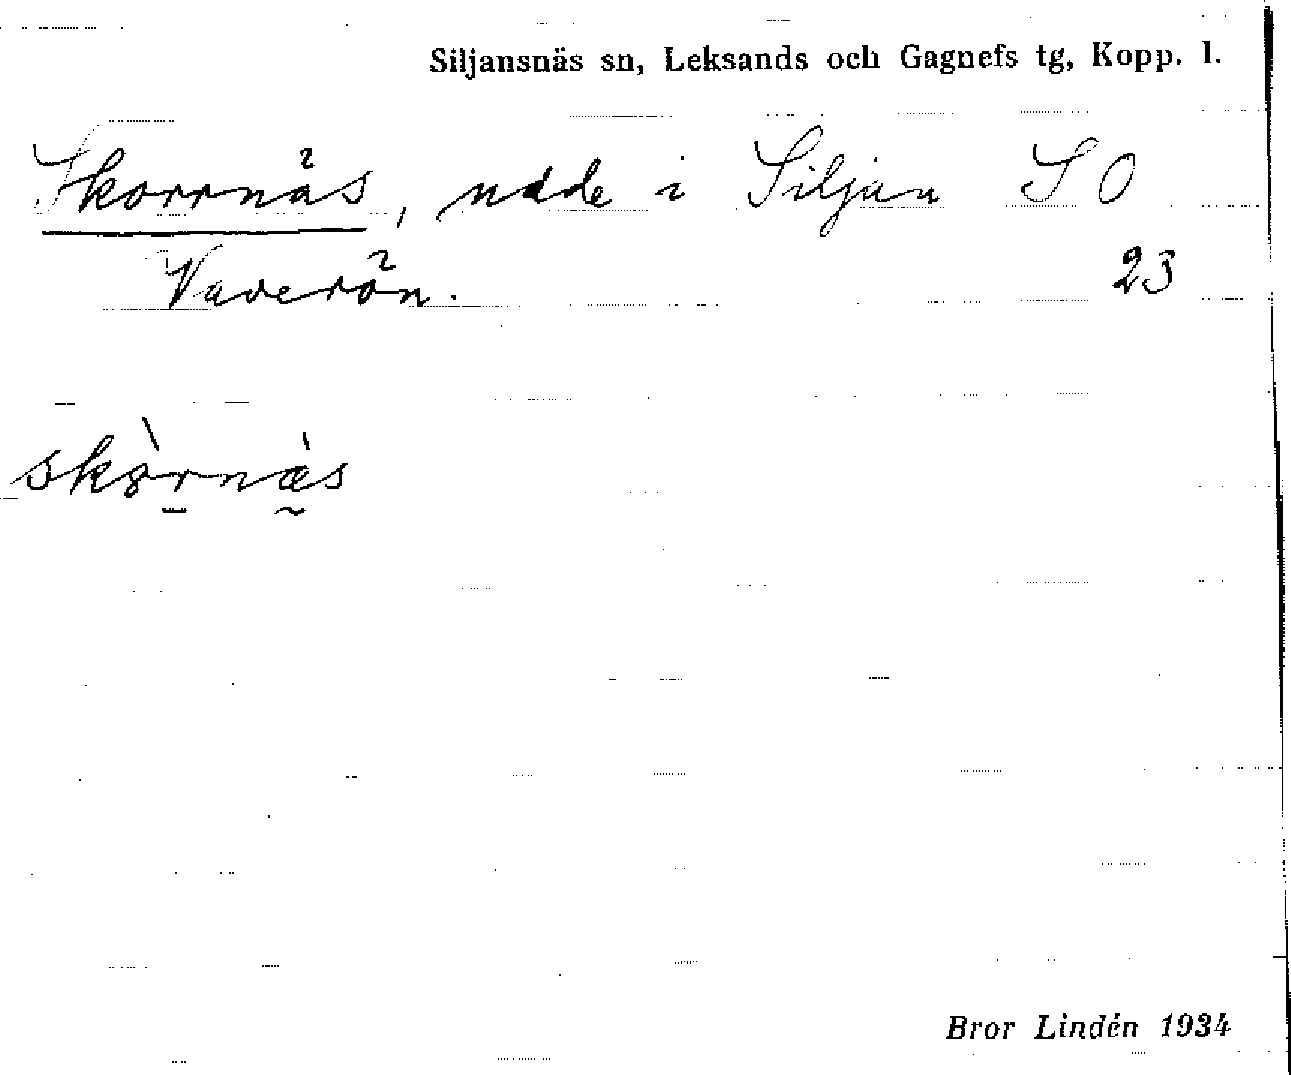 Siljansnäs sn, Leksands och Gagnefs tg, Kopp. l.
Skorrnäs, udde i Siljan S O
Vaverön. 23
skòrnäs
Bror Lindén 1934